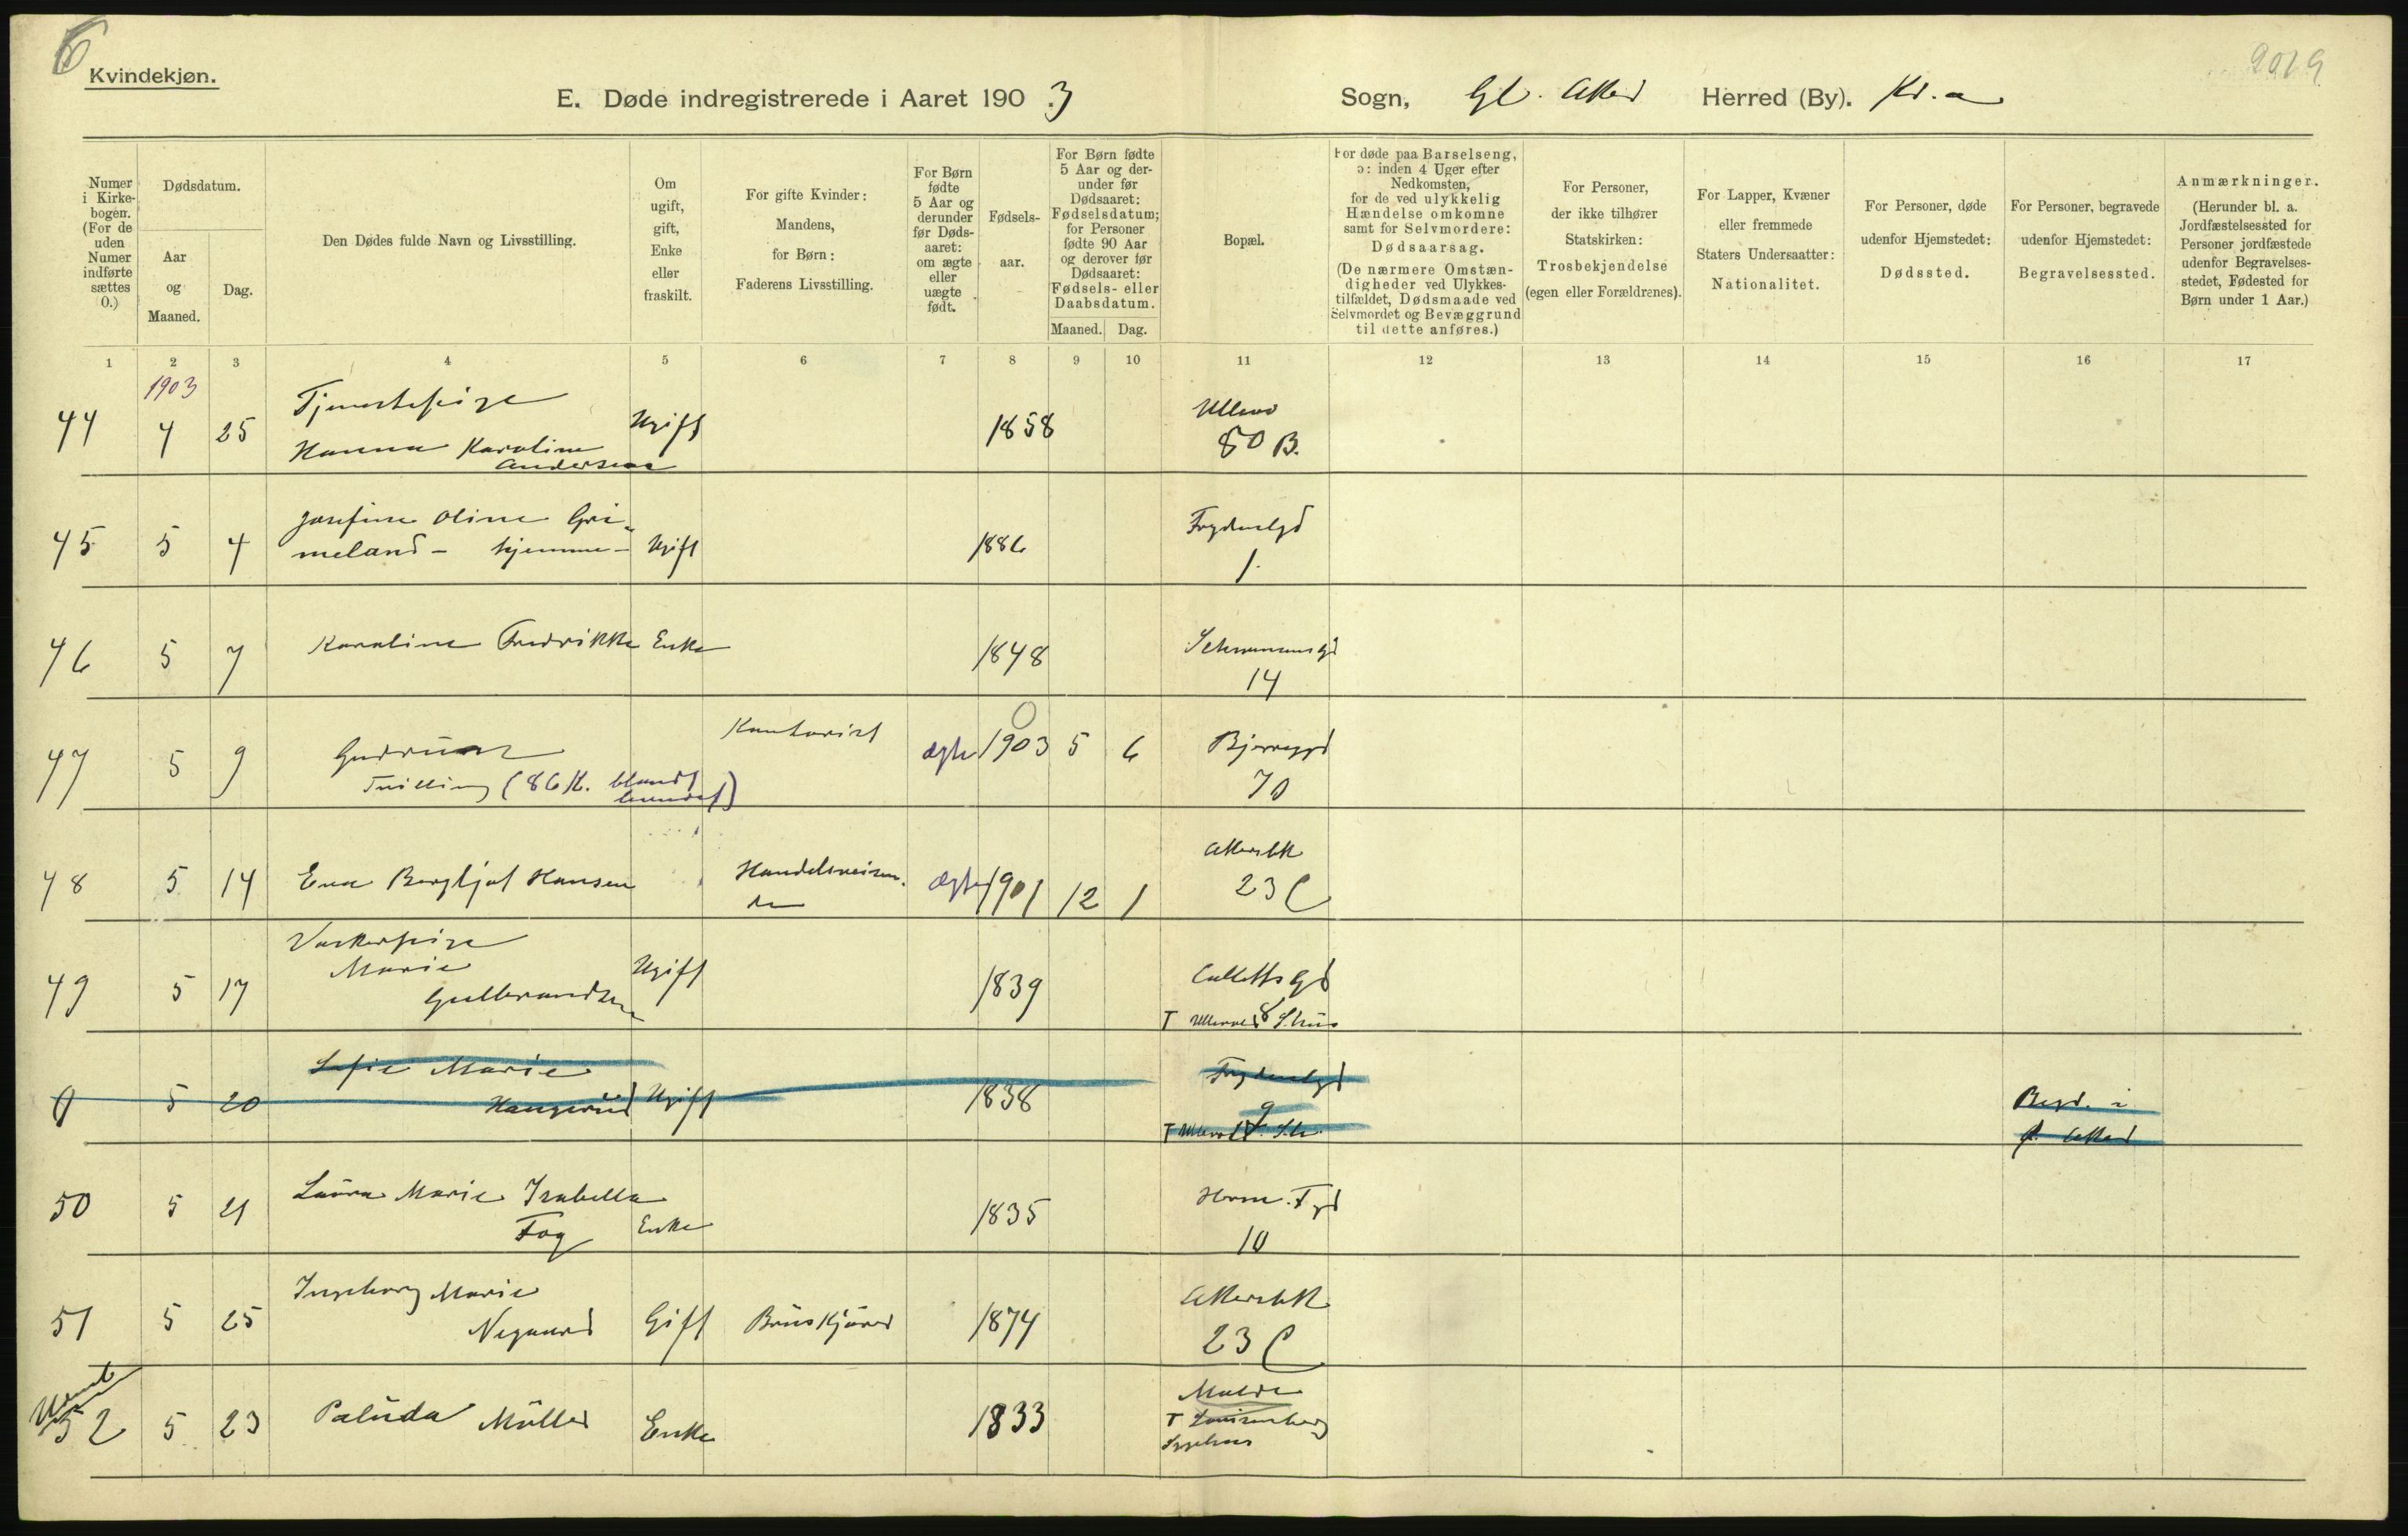 6
2019
Kvindekjøn.
E. Døde indregistrerede i Aaret 1903 Sogn, Gl. Aker Herred (By). Kr.a
Numer
i Kirke-
bogen.
(For de
uden
Numer
indførte
sættes
0.)
Dødsdatum.
Aar
og
Maaned.
Dag.
Den Dødes fulde Navn og Livsstilling.
Om
ugift,
gift,
Enke
eller
fraskilt.
For gifte Kvinder:
Mandens,
for Børn:
Faderens Livsstilling.
For Børn
fødte
5 Aar og
derunder
før Døds-
aaret:
om ægte
eller
uægte
født.
Fødsels-
aar.
For Børn fødte
5 Aar og der-
under før
Dødsaaret:
Fødselsdatum;
for Personer
fødte 90 Aar
og derover før
Dødsaaret:
Fødsels- eller
Daabsdatum.
Maaned. Dag.
Bopæl.
For døde paa Barselseng,
ɔ: inden 4 Uger efter
Nedkomsten,
for de ved ulykkelig
Hændelse omkomne
samt for Selvmordere:
Dødsaarsag.
(De nærmere Omstæn-
digheder ved Ulykkes-
tilfældet, Dødsmaade ved
Selvmordet og Bevæggrund
til dette anføres.)
For Personer,
der ikke tilhører
Statskirken:
Trosbekjendelse
(egen eller Forældrenes).
For Lapper, Kvæner
eller fremmede
Staters Undersaatter:
Nationalitet.
For Personer, døde
udenfor Hjemstedet:
Dødssted.
For Personer, begravede
udenfor Hjemstedet:
Begravelsessted.
Anmærkninger.
(Herunder bl. a.
Jordfæstelsessted for
Personer jordfæstede
udenfor Begravelses-
stedet, Fødested for
Børn under 1 Aar.)
1 2 3 4 5 6 7 8 9 10 11 12 13 14 15 16 17
1903
Tjenestepige
44 4 25 Hanna Karoline Ugift 1858 Ullevv
Andersen 80 B.
Josefine Oline Gri-
45 5 4 meland - hjemme - Ugift 1886 Frydenlgd
1.
46 5 7 Karoline Fredrikke Enke 1848 Schwensensgd
14
47 5 9 Gudrun Kontorist ægte 1903 5 6 Bjerregd
0
Tvilling (86 K. blandt
levendef) 70
48 5 14 Eva Bergljot Hansen Handelsreisen- Ægte 1901 12 1 Akersbk
de 23 C
Vaskerpige
Marie
49 5 17 Gulbrandsen Ugift 1839 Colletts Gd
8
T Ullevold S.hus
Sofie Marie
0 5 20 Haugerud Ugift 1838 Frydenlgd
9
T Ullevold S.h.
Begr. i
Ø. Aker
50 5 21 Laura Marie Isabella
Fog Enke 1835 Herm. Fgd
10
51 5 25 Ingeborg Marie
Nygaard Gift Bruskjører 1874 Akersbk
23 C
52 5 23 Paluda Müller Enke 1833 Molde
T Louisenberg
Sygehus